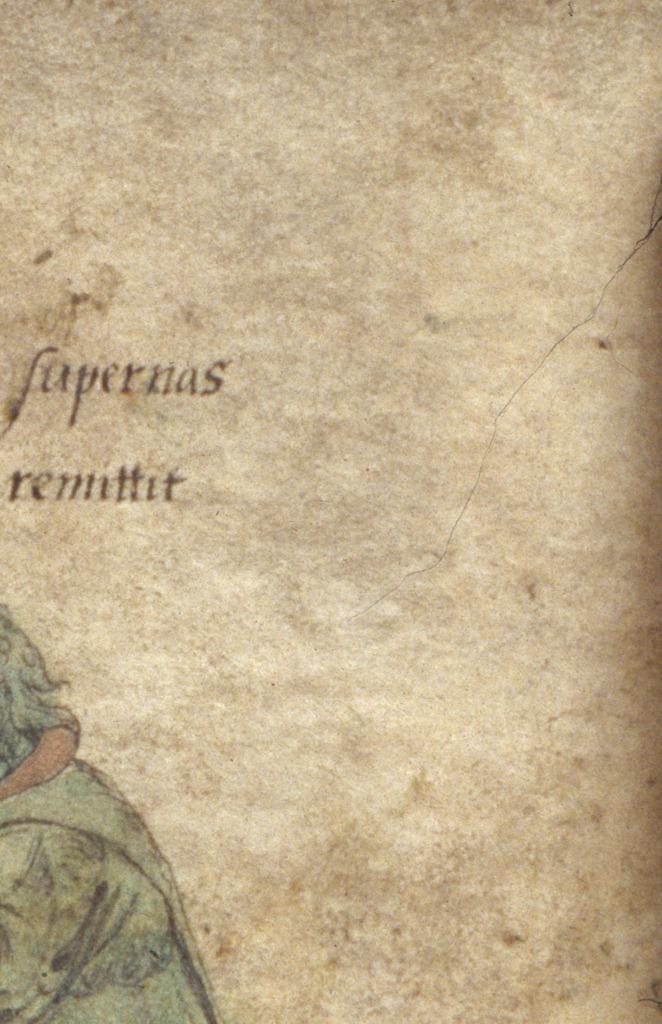 supernas
remittit